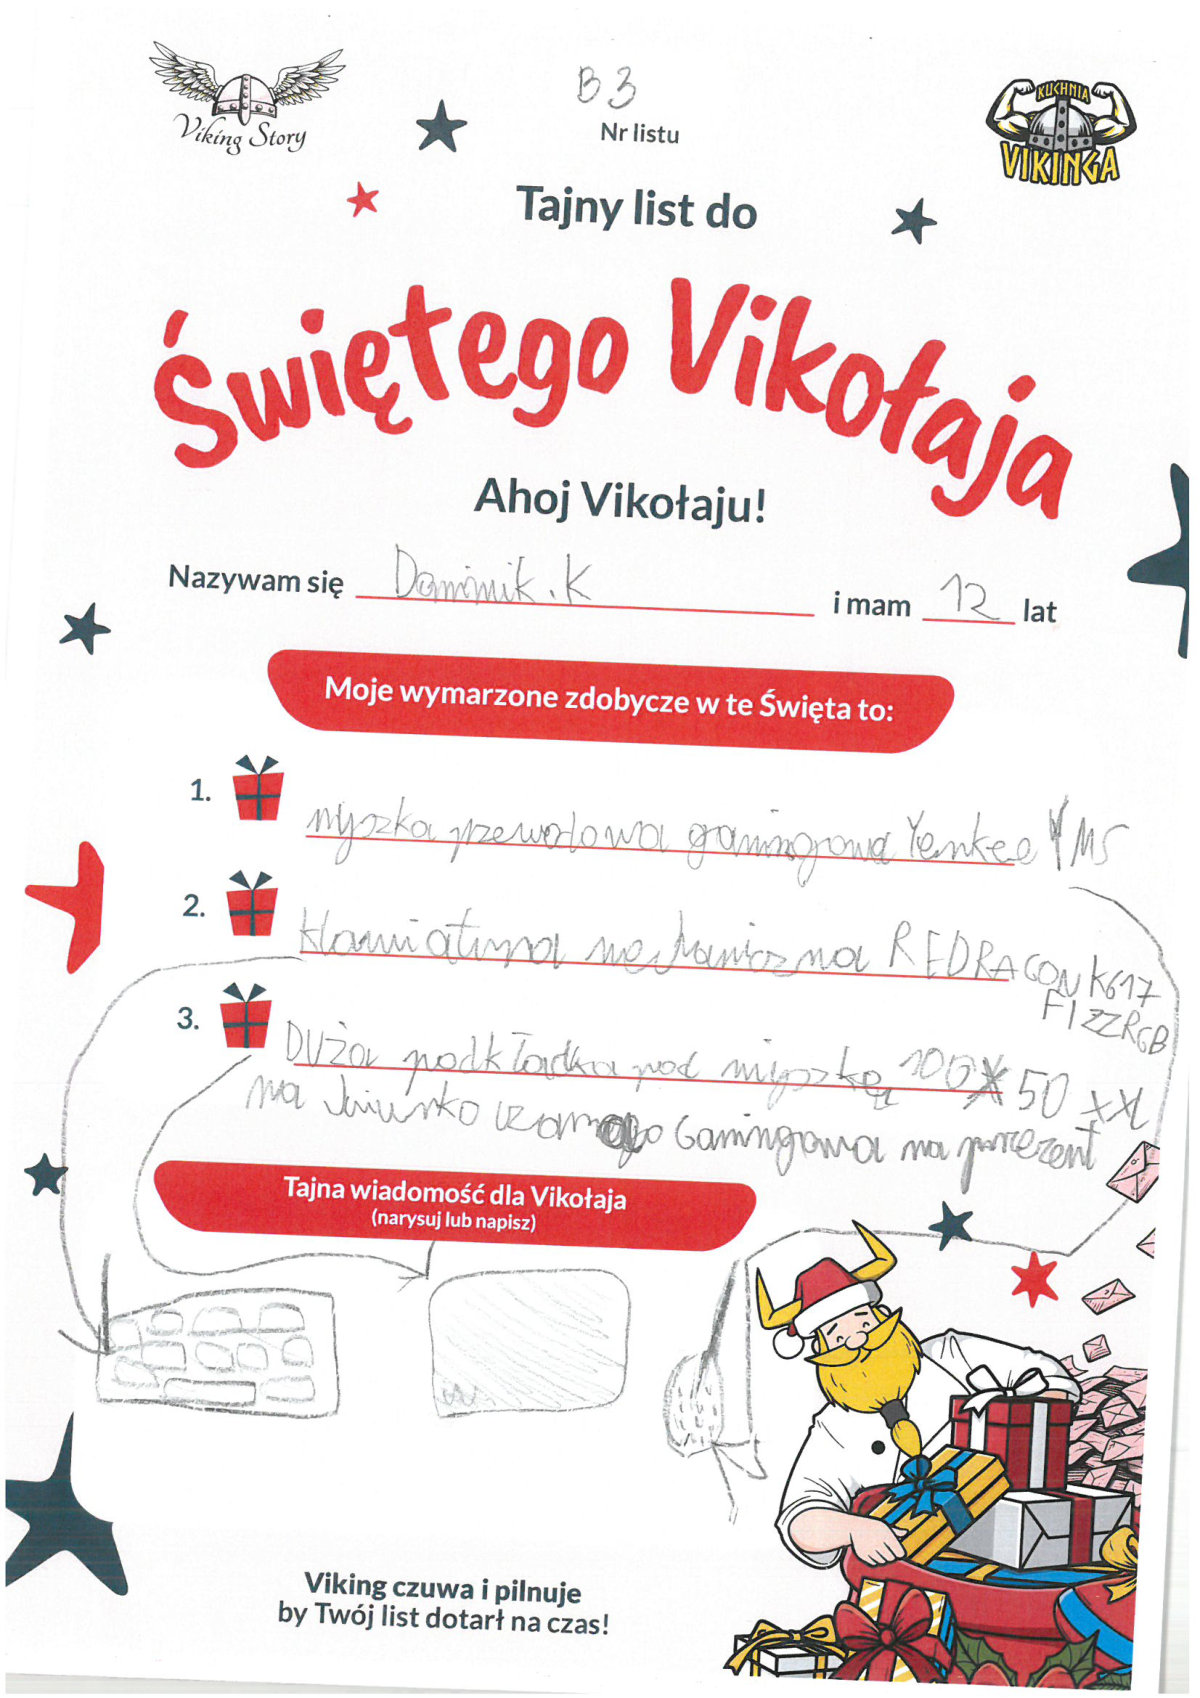 Viking Story
B3
Nr listu
KUCHNIA
VIKINGA
Tajny list do
Świętego Vikołaja
Ahoj Vikołaju!
Nazywam się Dominik.K i mam 12 lat
Moje wymarzone zdobycze w te Święta to:
1. myszka przewodowa gramingowa Yenkee YMS
2. klawiatura mechaniczna REDRAGON K617
FIZZ RGB
3. Duża podkładka pod myszkę 100X50 XXL
na biurko czarna Gamingowa na prezent
Tajna wiadomość dla Vikołaja
(narysuj lub napisz)
Viking czuwa i pilnuje
by Twój list dotarł na czas!